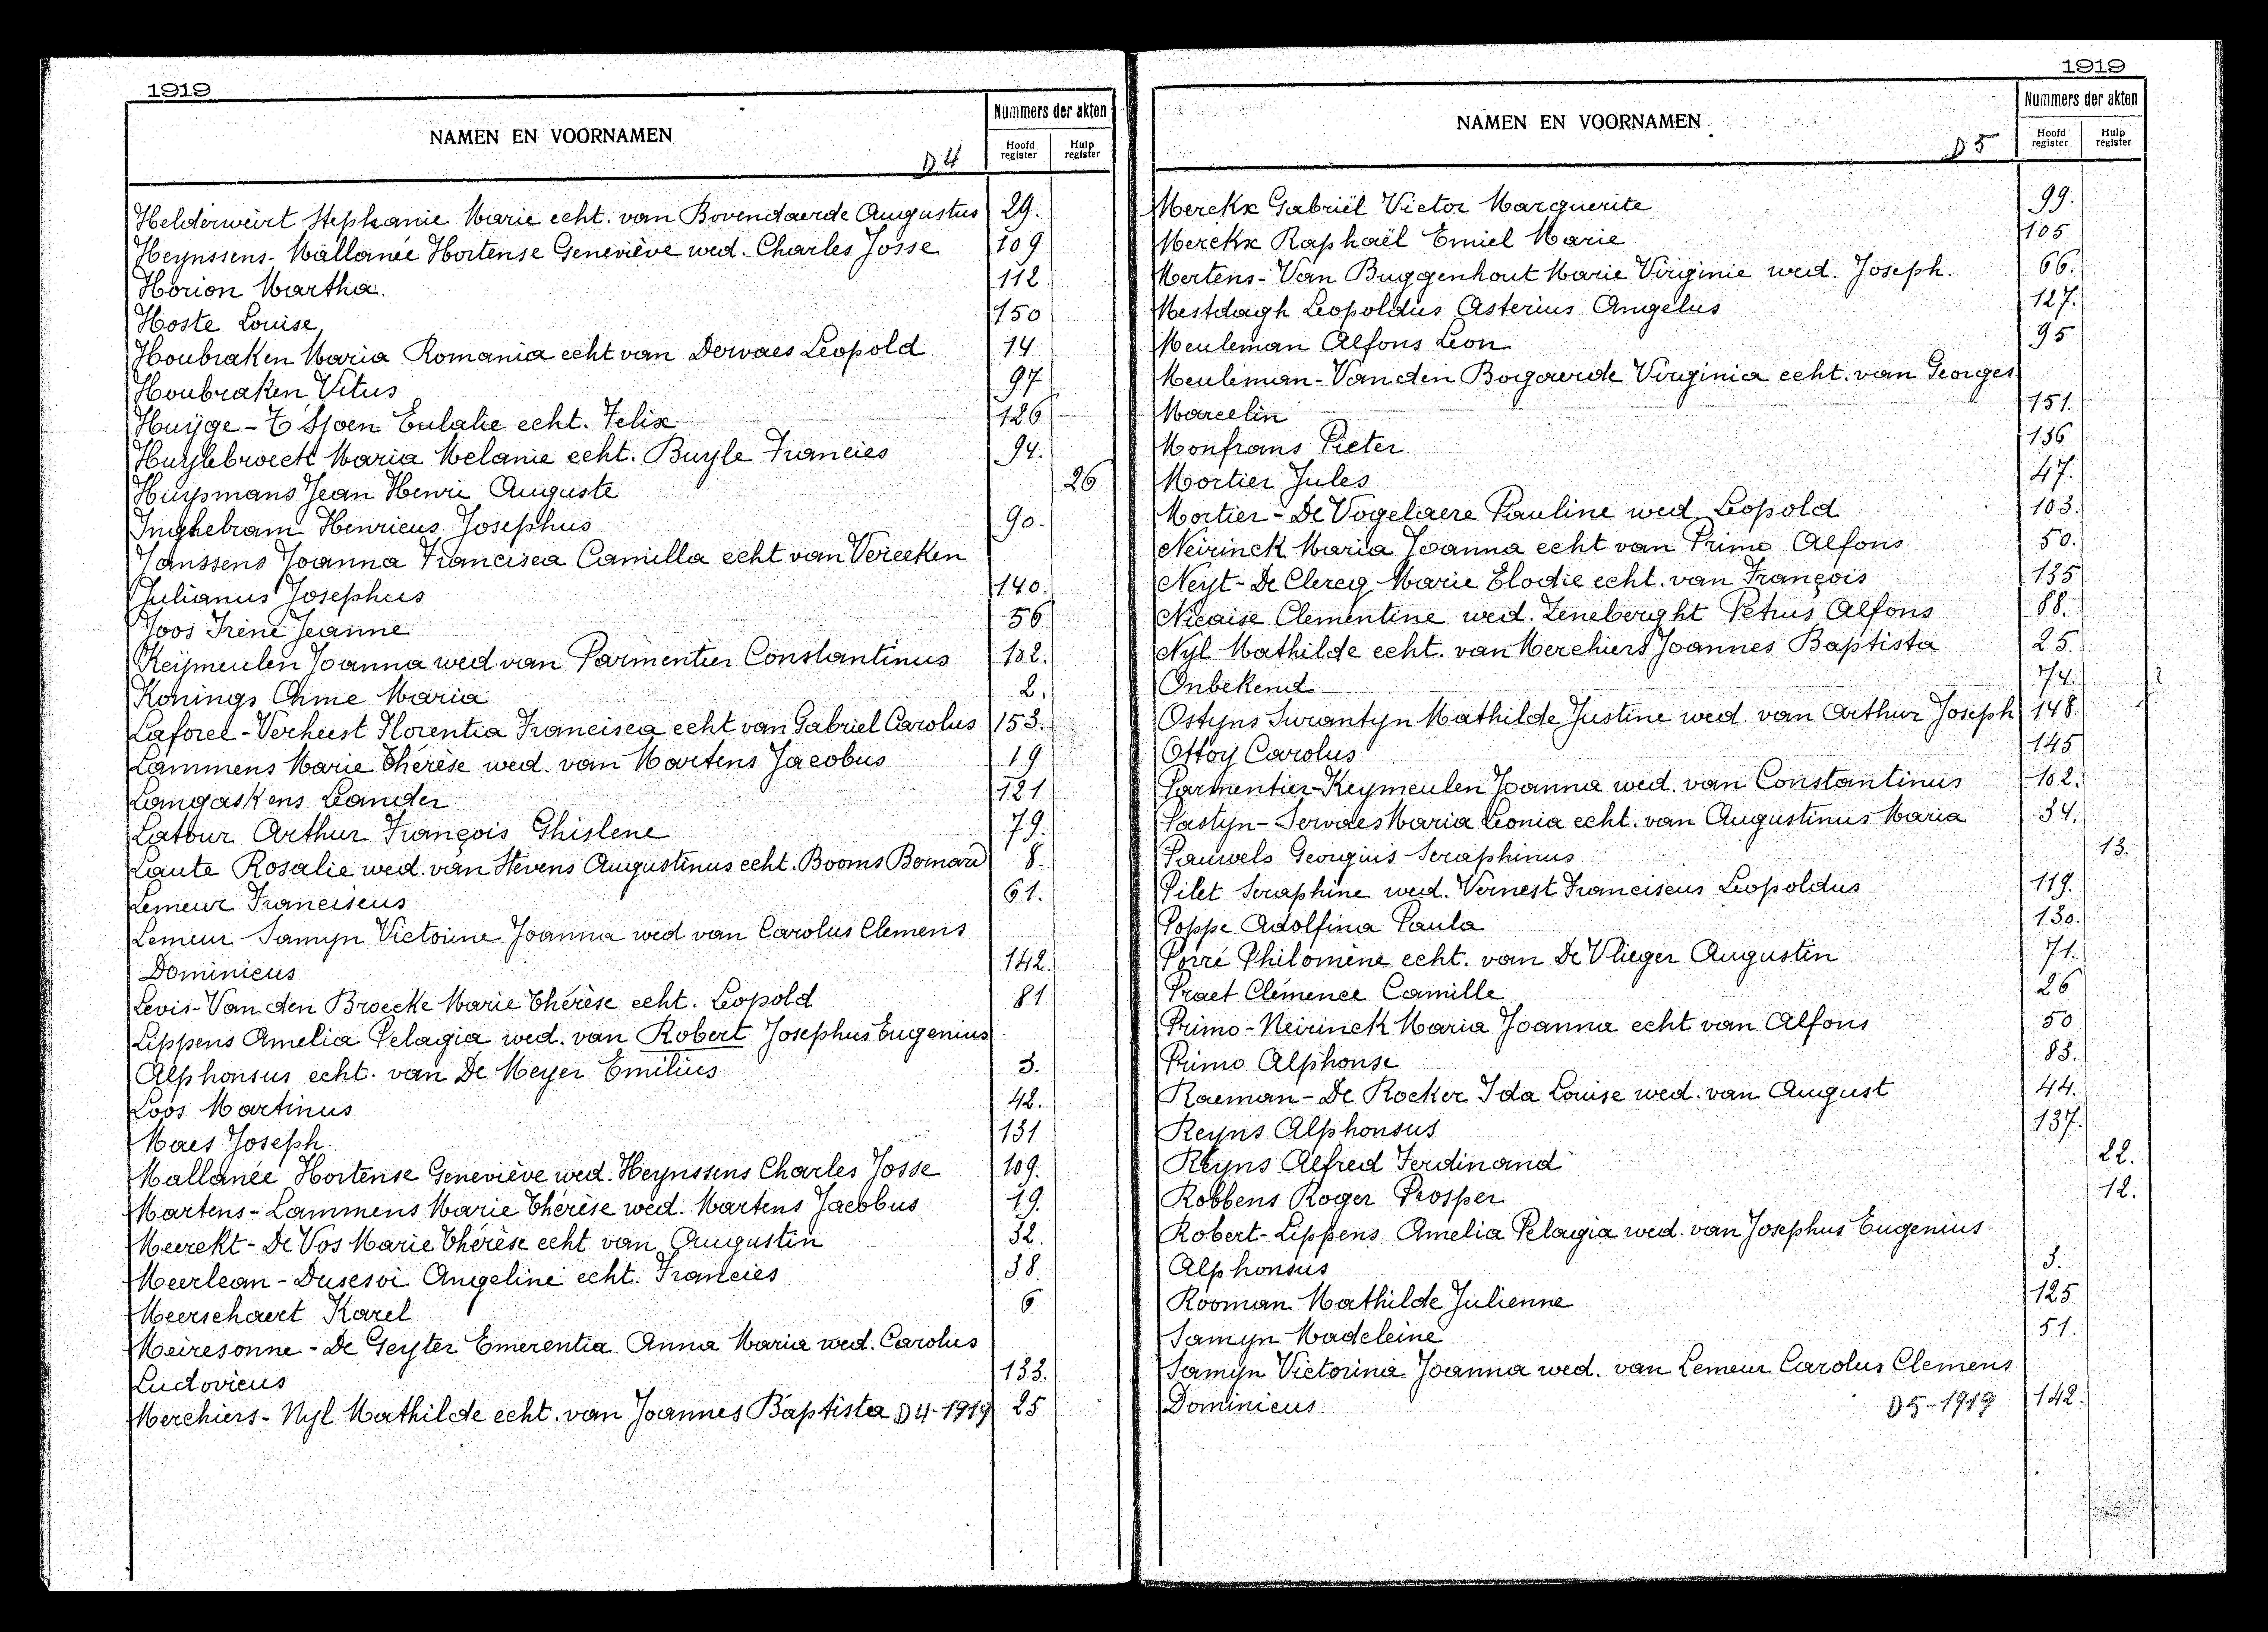 1919
NAMEN EN VOORNAMEN
D4
Nummers der akten
Hoofd register
Hulp register
Helderweirt Stephanie Marie echt. van Bovendaerde Augustus 29.
Heynssens-Mallanée Hortense Geneviève wed. Charles Josse 109
Horion Martha. 112.
Hoste Louise 150
Houbraken Maria Romania echt van Dervaes Leopold 14
Houbraken Vitus 97
Huÿge - T'Sjoen Eulalie echt. Felix 126
Huylebroeck Maria Melanie echt. Buyle Francies 94.
Huysmans Jean Henri Auguste 26
Inghebram Henricus Josephus 90.
Janssens Joanna Francisca Camilla echt van Vereeken
Julianus Josephus 140.
Joos Irène Jeanne 56
Keijmeulen Joanna wed van Parmentier Constantinus 102.
Konings Ohme Maria 2.
Laforce - Verheest Florentia Francisca echt van Gabriel Carolus 153.
Lammens Marie Thérèse wed. van Martens Jacobus 19
Langaskens Leander 121.
Latour Arthur François Ghislene 79.
Laute Rosalie wed. van Stevens Augustinus echt. Booms Bernard 8.
Lemeur Franciscus 61.
Lemeur Samyn Victorine Joanna wed van Carolus Clemens
Dominicus 142.
Levis-Van den Broecke Marie Thérèse echt. Leopold 81
Lippens Amelia Pelagia wed. van Robert Josephus Eugenius
Alphonsus echt. van De Meyer Emilius 3.
Loos Martinus 42.
Maes Joseph. 131
Mallanée Hortense Geneviève wed. Heynssens Charles Josse 109.
Martens - Lammens Marie Thérèse wed. Martens Jacobus 19.
Meerekt - De Vos Marie Thérèse echt van Augustin 32.
Meerlean - Dusesoi Angeline echt. Francies 38.
Meerschaert Karel 6
Meiresonne - De Geyter Emerentia Anna Maria wed. Carolus
Ludovicus 133.
Merchiers - Nyl Mathilde echt. van Joannes Baptista D4-1919 25
1919
NAMEN EN VOORNAMEN
D5
Nummers der akten
Hoofd register
Hulp register
Merckx Gabriël Victor Marguerite 99.
Merckx Raphaël Emiel Marie 105
Mertens - Van Buggenhout Marie Virginie wed. Joseph. 66.
Mestdagh Leopoldus Asterius Angelus 127.
Meuleman Alfons Leon 95
Meuleman - Vanden Bogaerde Virginia echt. van Georges
Marcelin 151.
Monfrans Pieter 136
Mortier Jules 47.
Mortier - De Vogelaere Pauline wed Leopold 103.
Neirinck Maria Joanna echt van Primo Alfons 50.
Neyt - De Clercq Marie Elodie echt. van François 135
Nicaise Clementine wed. Zeneberght Petrus Alfons 88.
Nyl Mathilde echt. van Merchiers Joannes Baptista 25.
Onbekend 74.
Ostyns Surantyn Mathilde Justine wed. van Arthur Joseph 148.
Ottoy Carolus 145
Parmentier-Keymeulen Joanna wed. van Constantinus 102.
Pastyn - Servaes Maria Leonia echt. van Augustinus Maria 34.
Pauwels Georgius Seraphinus 13.
Pilet Seraphine wed. Vernest Franciscus Leopoldus 119.
Poppe Adolfina Paula 130.
Porré Philomène echt. van De Vlieger Augustin 71.
Praet Clémence Camille 26
Primo - Neirinck Maria Joanna echt van Alfons 50
Primo Alphonse 83.
Raeman - De Rocker Ida Louise wed. van August 44.
Reyns Alphonsus 137.
Reyns Alfred Ferdinand 22.
Robbens Roger Prosper 12.
Robert - Lippens Amelia Pelagia wed. van Josephus Eugenius
Alphonsus 3.
Rooman Mathilde Julienne 125
Samyn Madeleine 51.
Samyn Victorina Joanna wed. van Lemeur Carolus Clemens
Dominicus D5-1919 142.